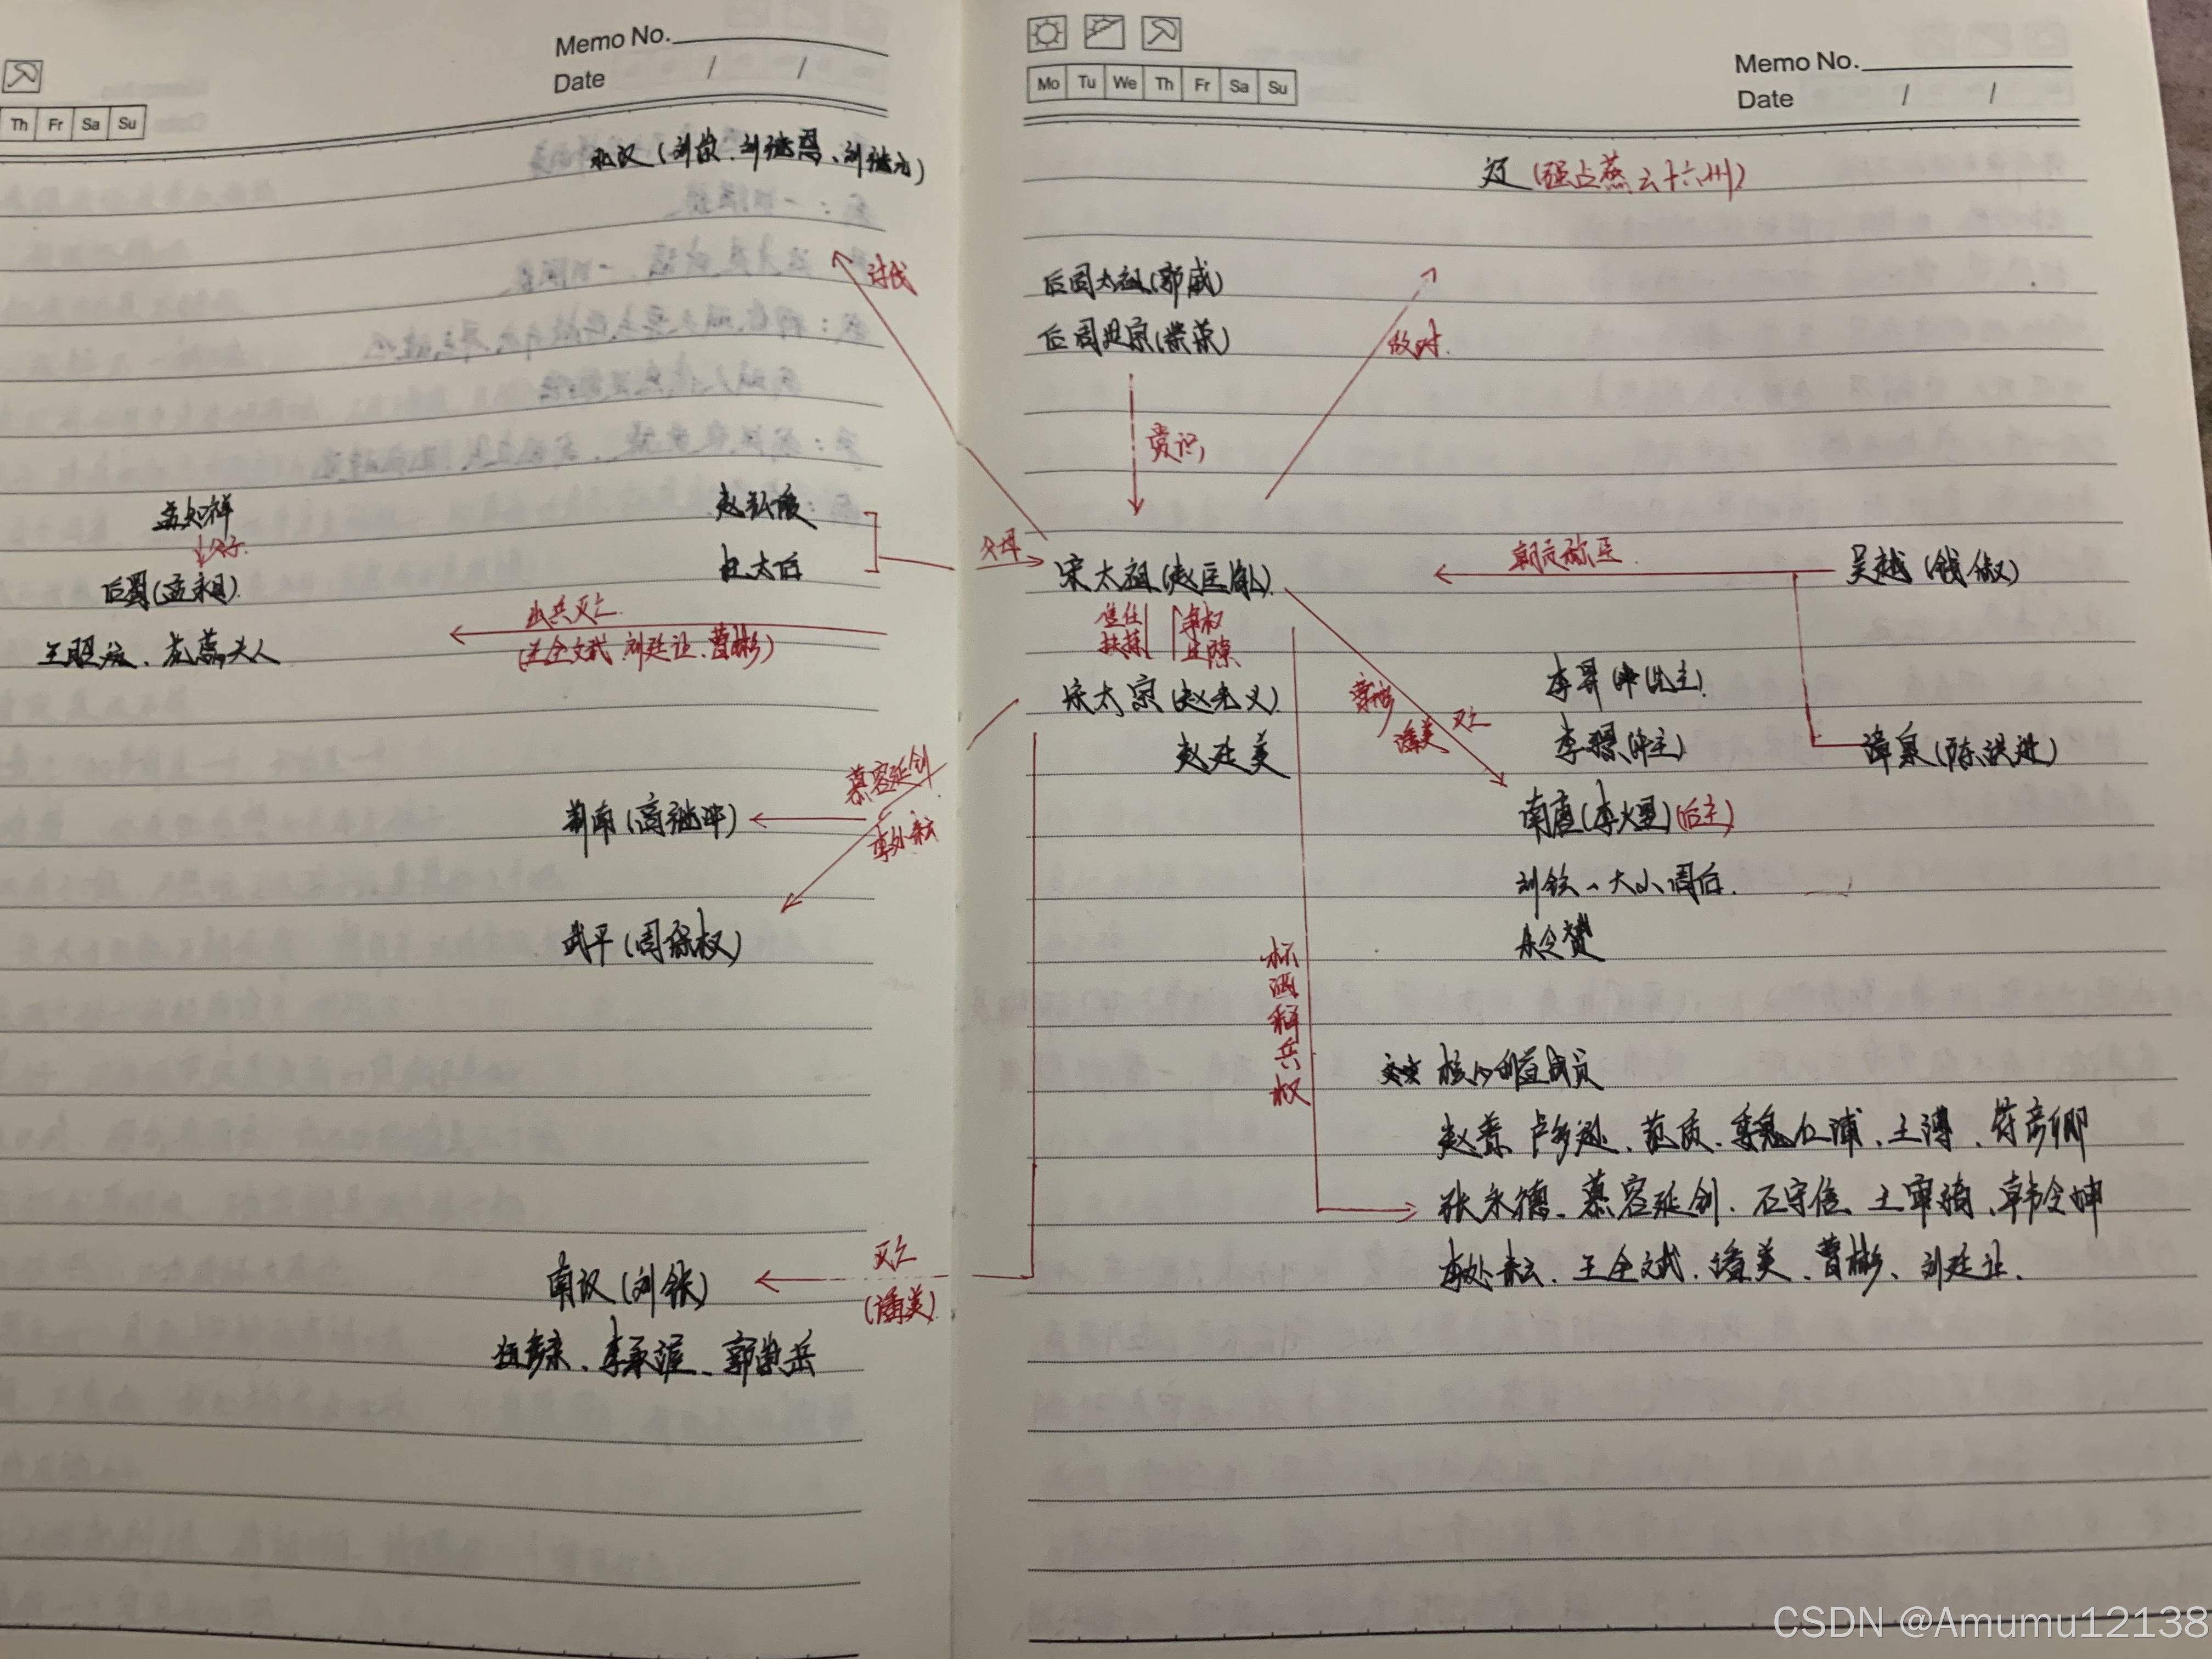 Memo No.
Date / /
Th Fr Sa Su
北汉(刘钧、刘继恩、刘继元)
讨伐
孟知祥
父子
后蜀(孟昶)
王昭远、花蕊夫人
赵弘殷
杜太后
父母
出兵灭亡
(王全斌、刘廷让、曹彬)
慕容延钊
李处耘
荆南(高继冲)
武平(周保权)
灭亡
(潘美)
南汉(刘鋹)
李承渥、郭崇岳
Memo No.
Date / /
Mo Tu We Th Fr Sa Su
辽(强占燕云十六州)
后周太祖(郭威)
后周世宗(柴荣)
敌对
赏识
宋太祖(赵匡胤)
朝贡称臣
吴越(钱俶)
信任
扶持
争权
生隙
宋太宗(赵光义)
赵廷美
曹彬
潘美 灭亡
李昪(先主)
李璟(中主)
漳泉(陈洪进)
南唐(李煜)(后主)
大小周后
朱令赟
杯酒释兵权
核心利益成员
赵普、卢多逊、范质、魏仁浦、王溥、符彦卿
张永德、慕容延钊、石守信、王审琦、韩令坤
李处耘、王全斌、潘美、曹彬、刘廷让、
CSDN @Amumu12138